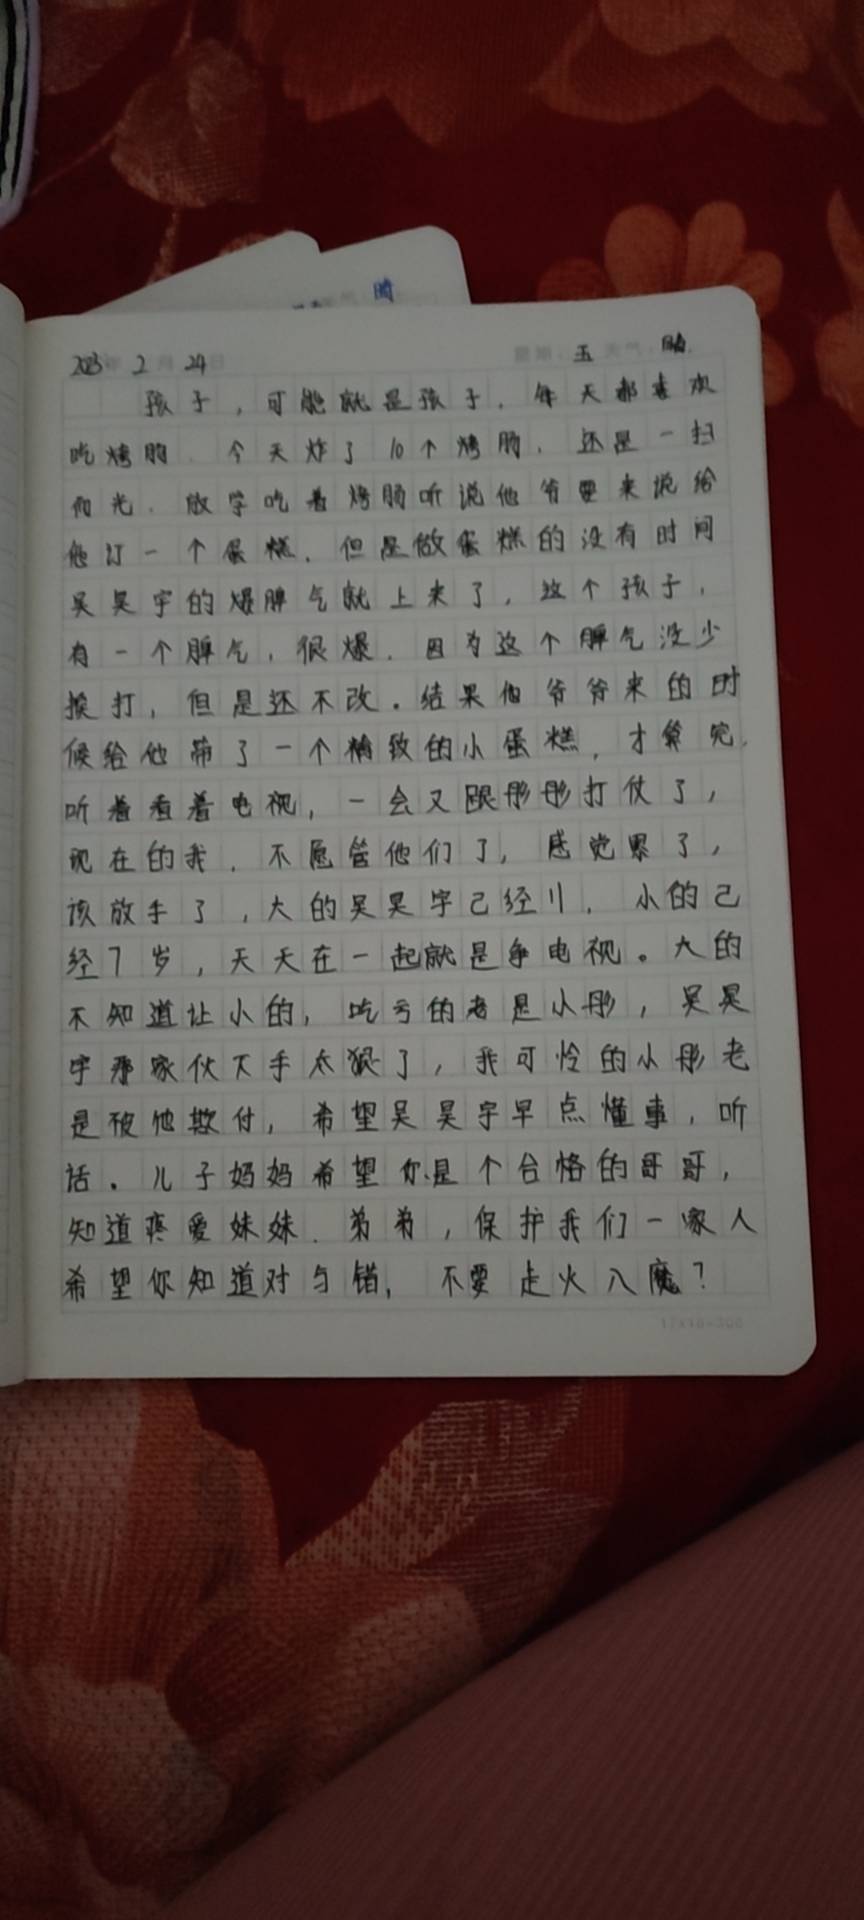 2023年 2月 24日 星期 五 天气 晴.
孩子，可能就是孩子. 每天都喜欢
吃烤肠. 今天炸了10个烤肠. 还是一扫
而光. 放学吃着烤肠听说他爷要来说给
他订一个蛋糕. 但是做蛋糕的没有时间
吴昊宇的爆脾气就上来了，这个孩子，
有一个脾气，很爆. 因为这个脾气没少
挨打，但是还不改。结果他爷爷来的时
候给他带了一个精致的小蛋糕，才算完.
听着看着电视，一会又跟彤彤打仗了，
现在的我. 不愿管他们了，感觉累了，
该放手了，大的吴昊宇己经11. 小的己
经7岁，天天在一起就是争电视。大的
不知道让小的，吃亏的老是小彤，吴昊
宇那家伙下手太狠了，我可怜的小彤老
是被他欺付，希望吴昊宇早点懂事，听
话。儿子妈妈希望你是个合格的哥哥，
知道疼爱妹妹. 弟弟，保护我们一家人
希望你知道对与错， 不要走火入魔？
17x18=306
晴